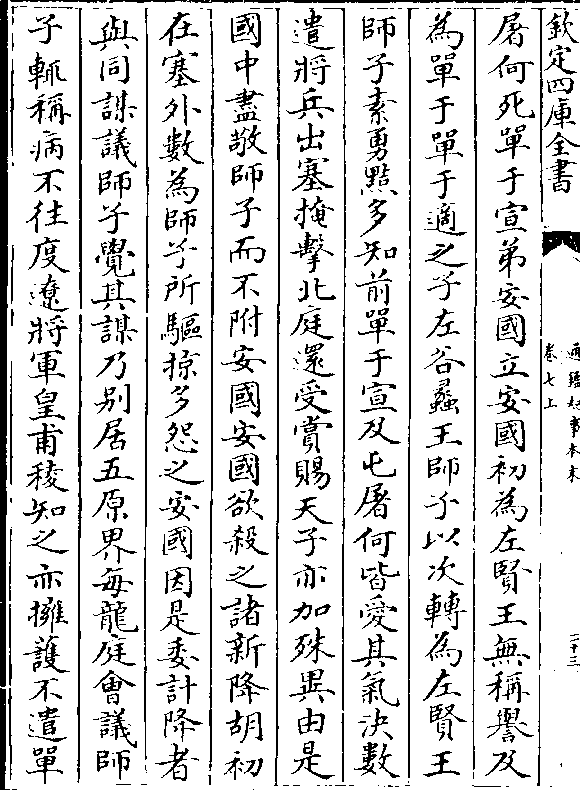 欽定四庫全書
通鑑紀事本末
卷七上
二十三
屠何死單于宣弟安國立安國初為左賢王無稱譽及
為單于單于適之子左谷蠡王師子以次轉為左賢王
師子素勇黠多知前單于宣及屯屠何皆愛其氣決數
遣將兵出塞掩擊北庭還受賞賜天子亦加殊異由是
國中盡敬師子而不附安國安國欲殺之諸新降胡初
在塞外數為師子所驅掠多怨之安國因是委計降者
與同謀議師子覺其謀乃别居五原界每龍庭會議師
子輒稱病不往度遼將軍皇甫稜知之亦擁護不遣單